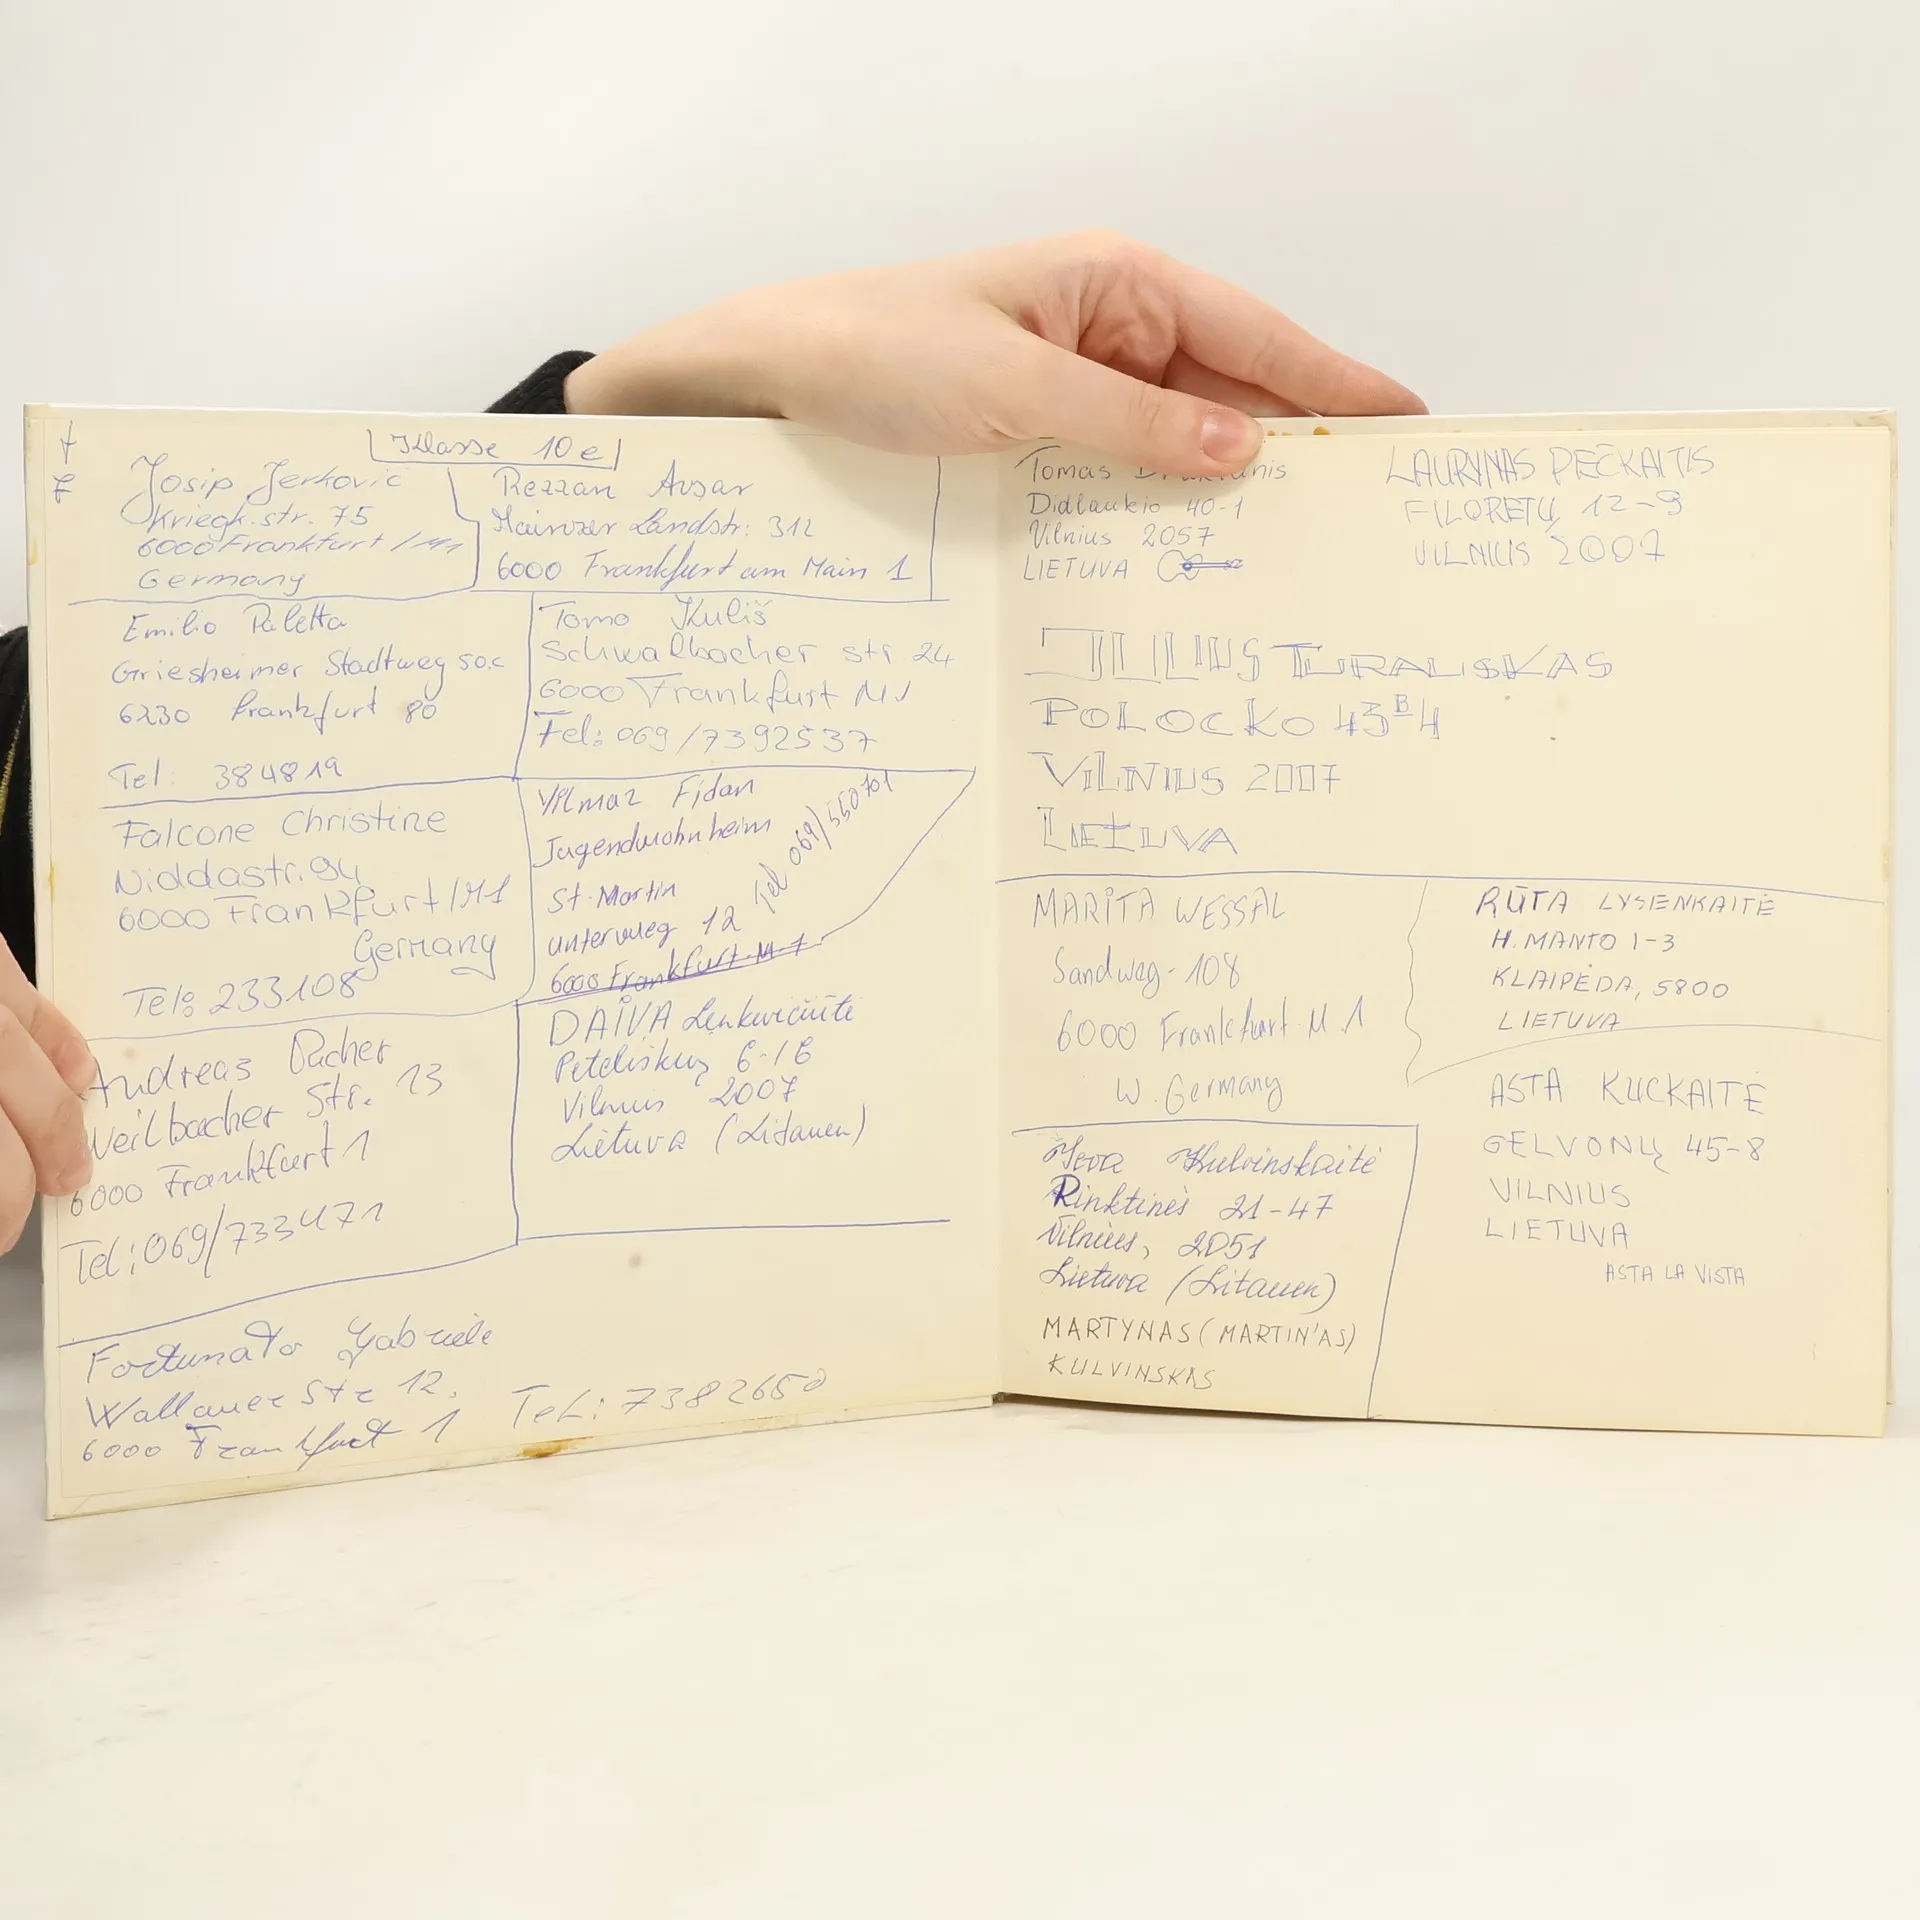 Klasse 10e
Josip Jerković
Kriegk.str. 75
6000 Frankfurt / M1
Germany
Rezzan Avsar
Mainzer Landstr: 312
6000 Frankfurt am Main 1
Emilio Paletta
Griesheimer Stadtweg 50.c
6230 Frankfurt 80
Tel: 384819
Tomo Kuliš
Schwalbacher str 24
6000 Frankfurt M1
Tel: 069/7392537
Falcone Christine
Niddastr. 94
6000 Frankfurt/M1
Germany
Tel: 233108
Yilmaz Fidan
Jugendwohnheim
St. Martin
unterweg 12
Tel 069/550701
6000 Frankfurt. M. 1
Andreas Pucher
Weilbacher Str. 13
6000 Frankfurt 1
Tel: 069/733471
DAIVA Lenkevičiūtė
Peteliškių 6-16
Vilnius 2007
Lietuva (Litauen)
Fortunato Gabriele
Wallauer Str 12.
6000 Frankfurt 1
Tel: 7382650
Tomas
Didlaukio 40-1
Vilnius 2057
LIETUVA
LAURYNAS PEČKAITIS
FILORETŲ 12-9
VILNIUS 2007
JULIUS TURAUSKAS
POLOCKO 43B-4
VILNIUS 2007
LIETUVA
MARITA WESSAL
Sandweg-108
6000 Frankfurt M. 1
W. Germany
RŪTA LYSENKAITĖ
H. MANTO 1-3
KLAIPĖDA, 5800
LIETUVA
Ieva Kulvinskaitė
Rinktinės 21-47
Vilnius, 2051
Lietuva (Litauen)
MARTYNAS (MARTIN'AS)
KULVINSKAS
ASTA KUCKAITĖ
GELVONŲ 45-8
VILNIUS
LIETUVA
ASTA LA VISTA